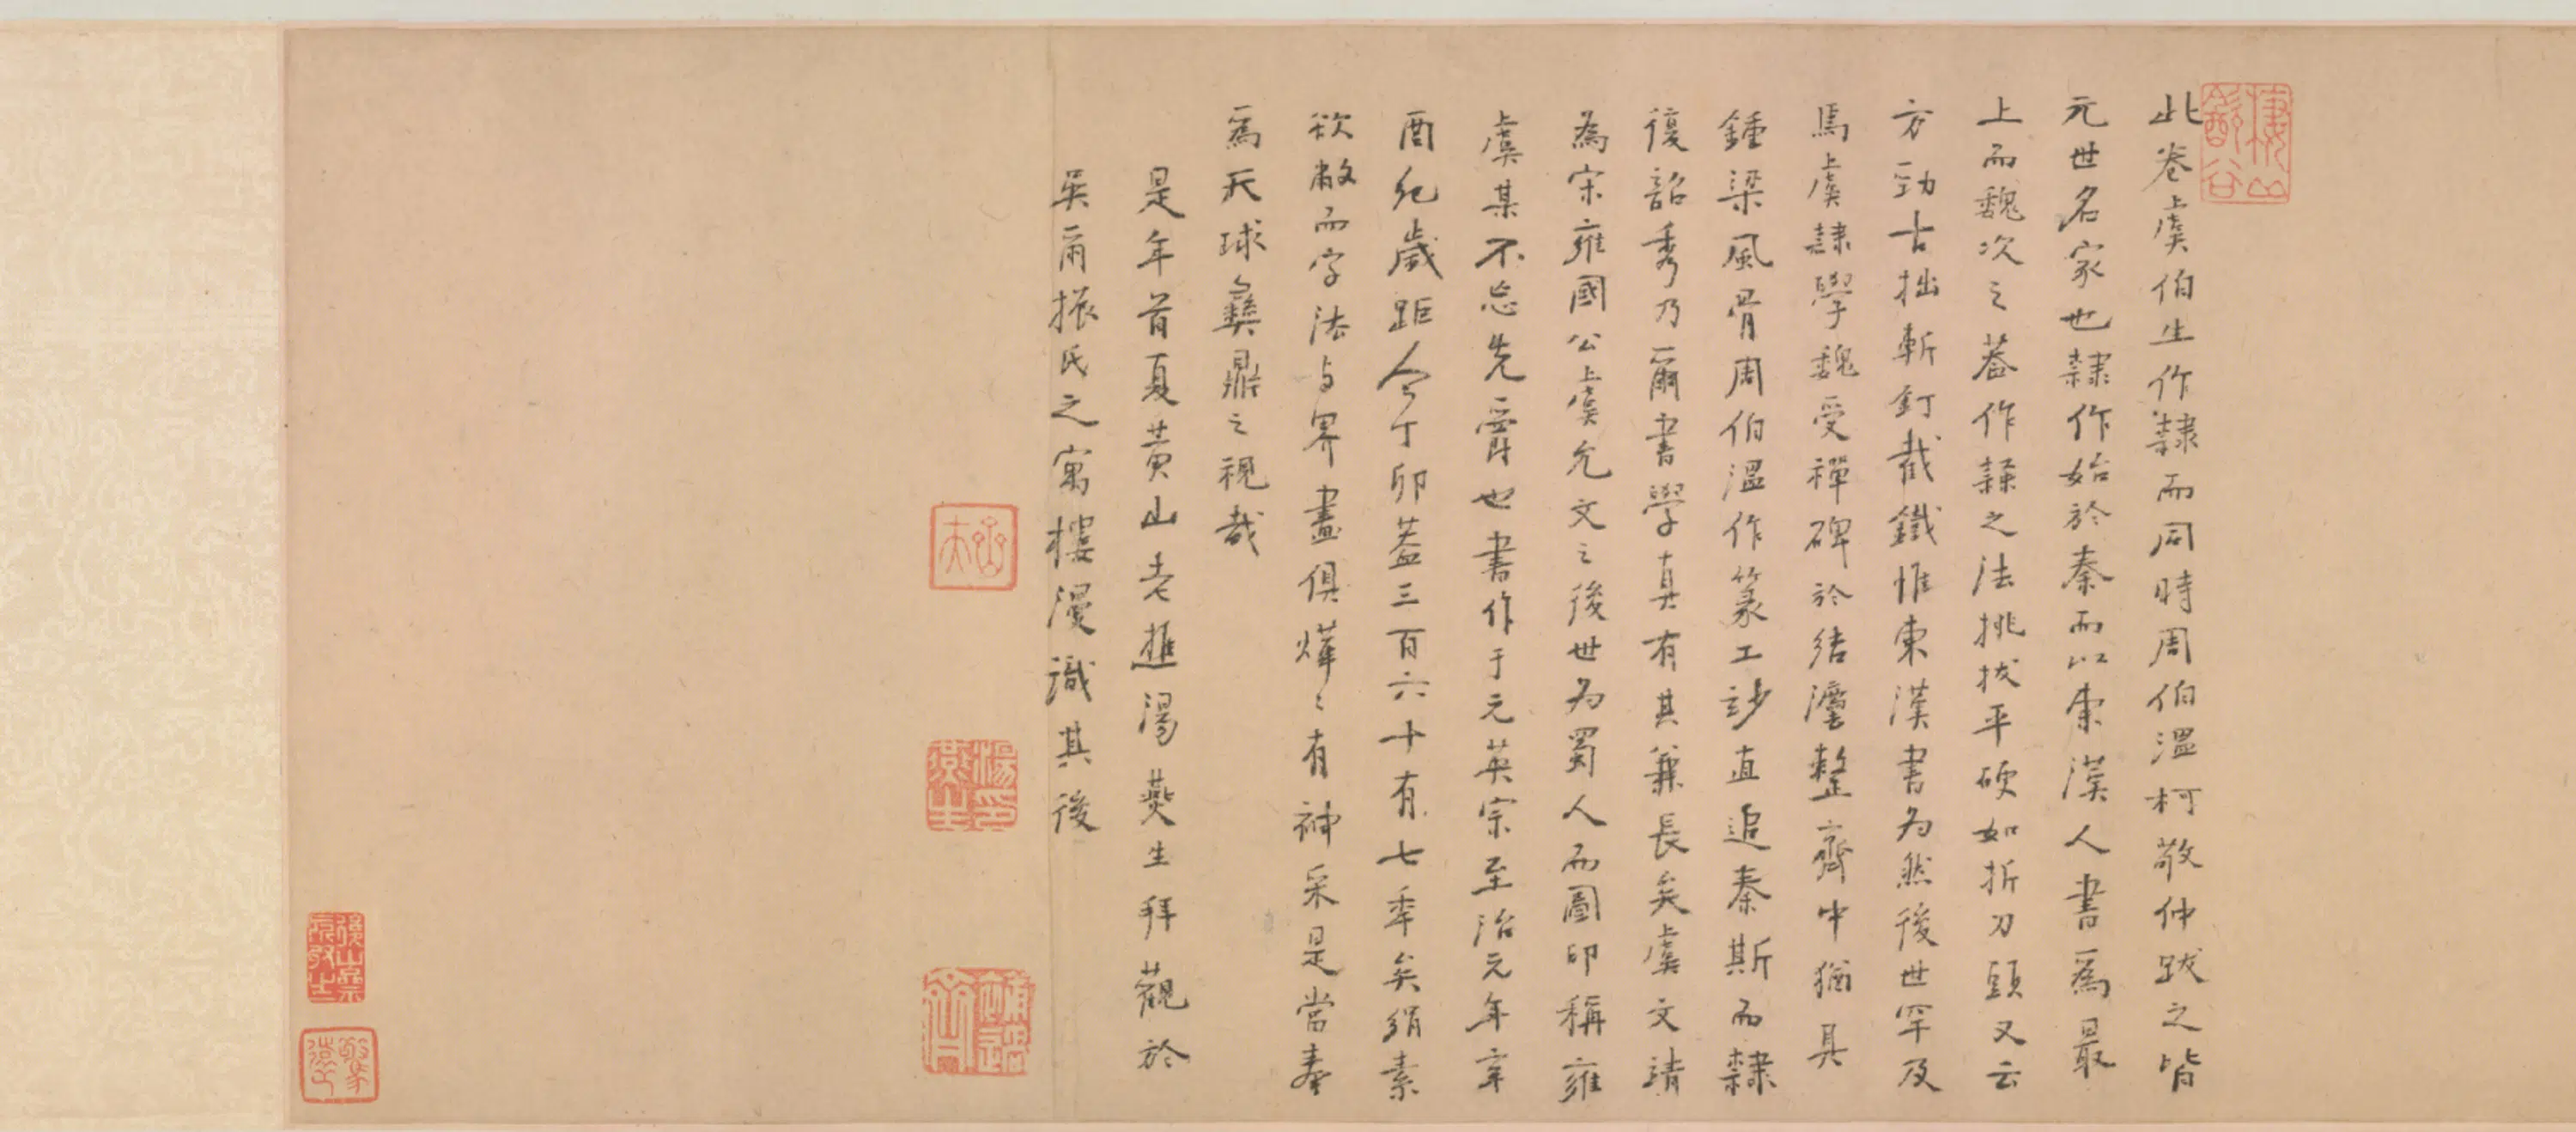 此卷虞伯生作隸而同時周伯溫柯敬仲跋之皆
元世名家也隸作始於秦而以東漢人書爲最
上而魏次之蓋作隸之法挑拔平硬如折刀頭又云
方勁古拙斬釘截鐵惟東漢書为然後世罕及
馬虞隸學魏受禪碑於結灋整齊中猶具
鍾梁風骨周伯溫作篆工玅直追秦斯而隸
復韶秀乃爾書學真有其兼長矣虞文靖
為宋雍國公虞允文之後世为蜀人而圖印稱雍
虞某不忘先爵也書作于元英宗至治元年辛
酉紀歲距今丁卯蓋三百六十有七秊矣絹素
欲敝而字法与界畫俱燁〻有神采是當奉
爲天球彝鼎之視哉
是年首夏黃山老樵湯燕生拜觀於
吳爾振氏之寓樓漫識其後
湯燕生印